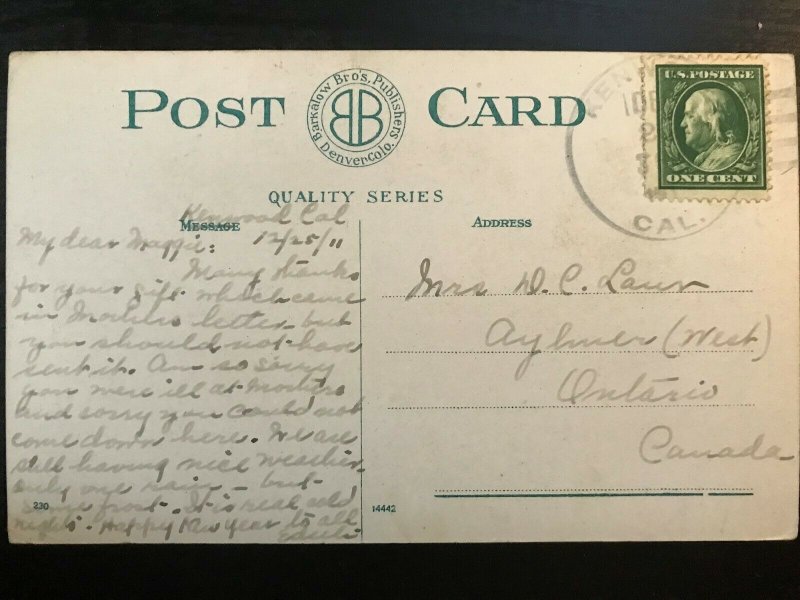 POST CARD
Barkalow Bro's, Publishers
Denver Colo.
BB
QUALITY SERIES
U.S. POSTAGE
ONE CENT
KEN
DE
CAL.
MESSAGE
ADDRESS
Kenwood Cal
12/25/11
My dear Maggie:
Many thanks
for your gift which came
in letter but
you should not have
sent it. Am so sorry
you were ill at
and sorry you could not
come down here. We are
still having nice weather
only one rain - but
some frost. It is real cold
nights. Happy New Year to all
Mrs D. C.
Aylmer (West)
Ontario
Canada
230
14442